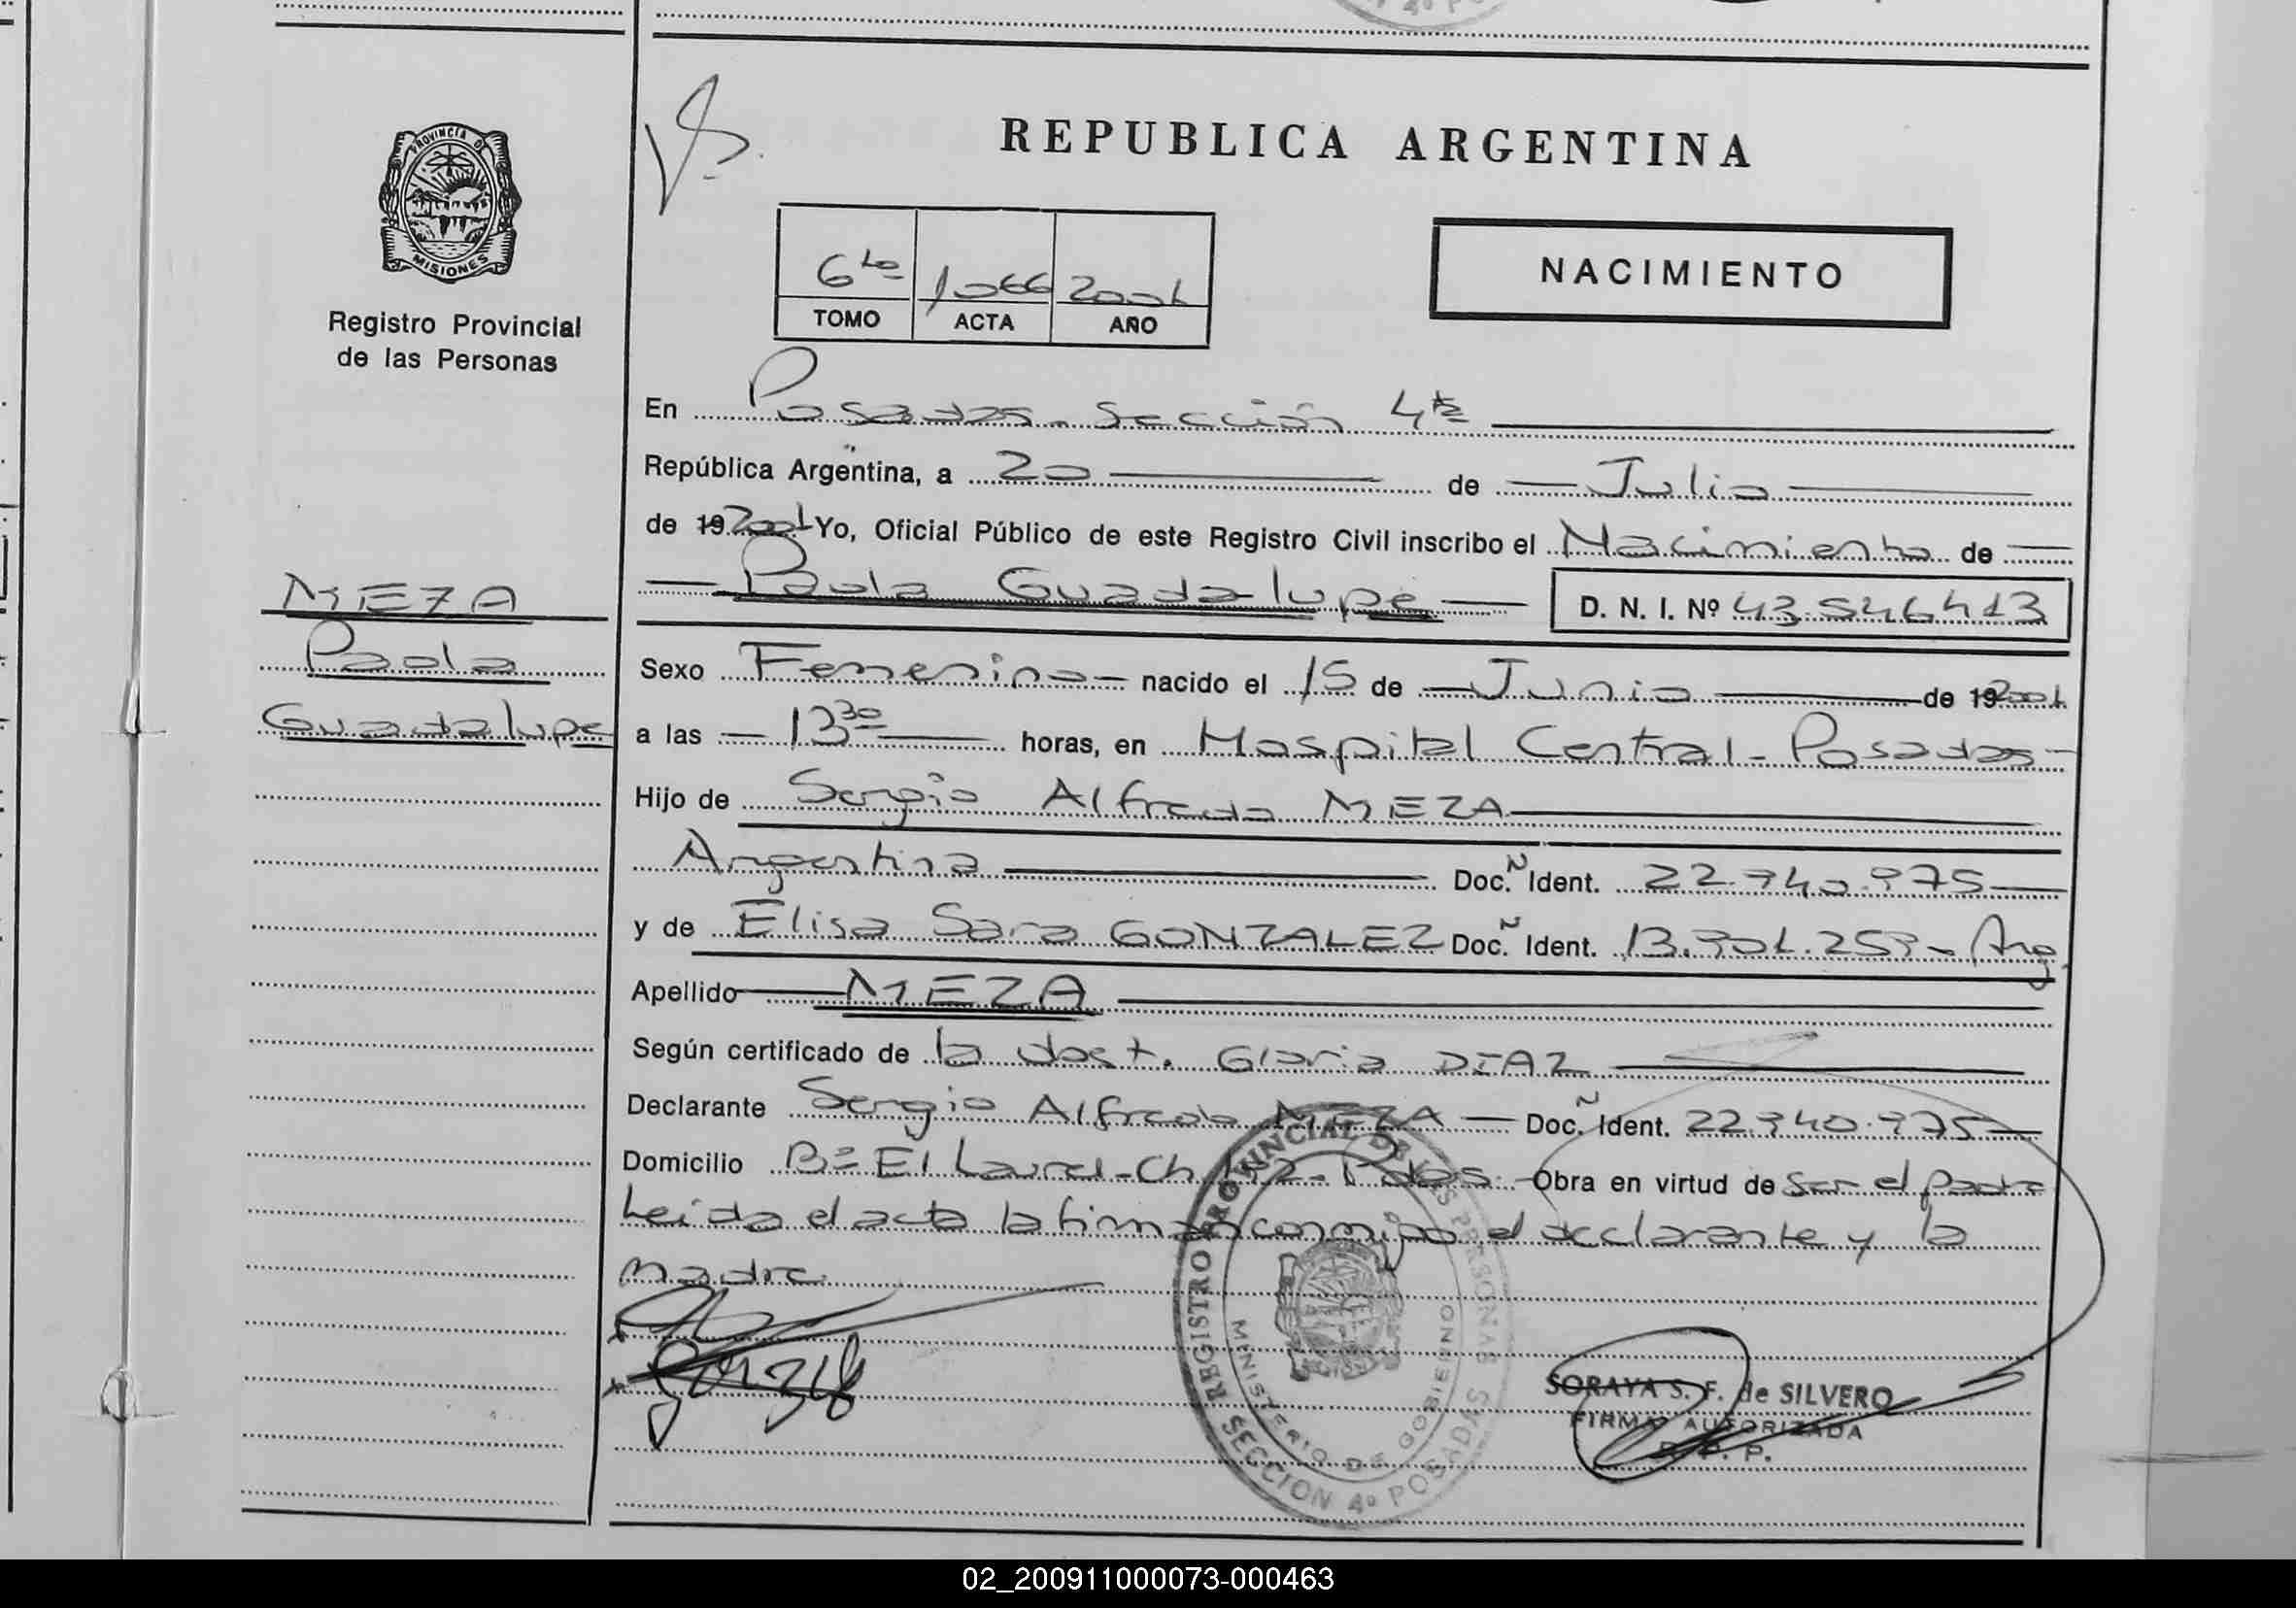 REPUBLICA ARGENTINA
PROVINCIA DE
MISIONES
Registro Provincial
de las Personas
6to 1066 2001
TOMO ACTA AÑO
NACIMIENTO
En Posadas - Sección 4ta
República Argentina, a 20 de Julio
de 19 2001 Yo, Oficial Público de este Registro Civil inscribo el Nacimiento de
Paola Guadalupe D. N. I. Nº 43.546413
MEZA
Paola
Guadalupe
Sexo Femenino nacido el 15 de Junio de 19 2001
a las 13 30 horas, en Hospital Central - Posadas
Hijo de Sergio Alfredo MEZA
Argentina Doc. Ñ Ident. 22.940.975
y de Elisa Sara GONZALEZ Doc. Ñ Ident. 13.901.259 - Arg.
Apellido MEZA
Según certificado de la obst. Gloria DIAZ
Declarante Sergio Alfredo MEZA Doc. Ñ Ident. 22.940.975
Domicilio Bº El Laurel - Ch. Obra en virtud de ser el padre
Leída el acta la firman conmigo el declarante y la
madre
REGISTRO PROVINCIAL DE LAS PERSONAS
MINISTERIO DE GOBIERNO
SECCION 4º POSADAS
SORAYA S. F. de SILVERO
FIRMA AUTORIZADA
R. P. P.
02_200911000073-000463